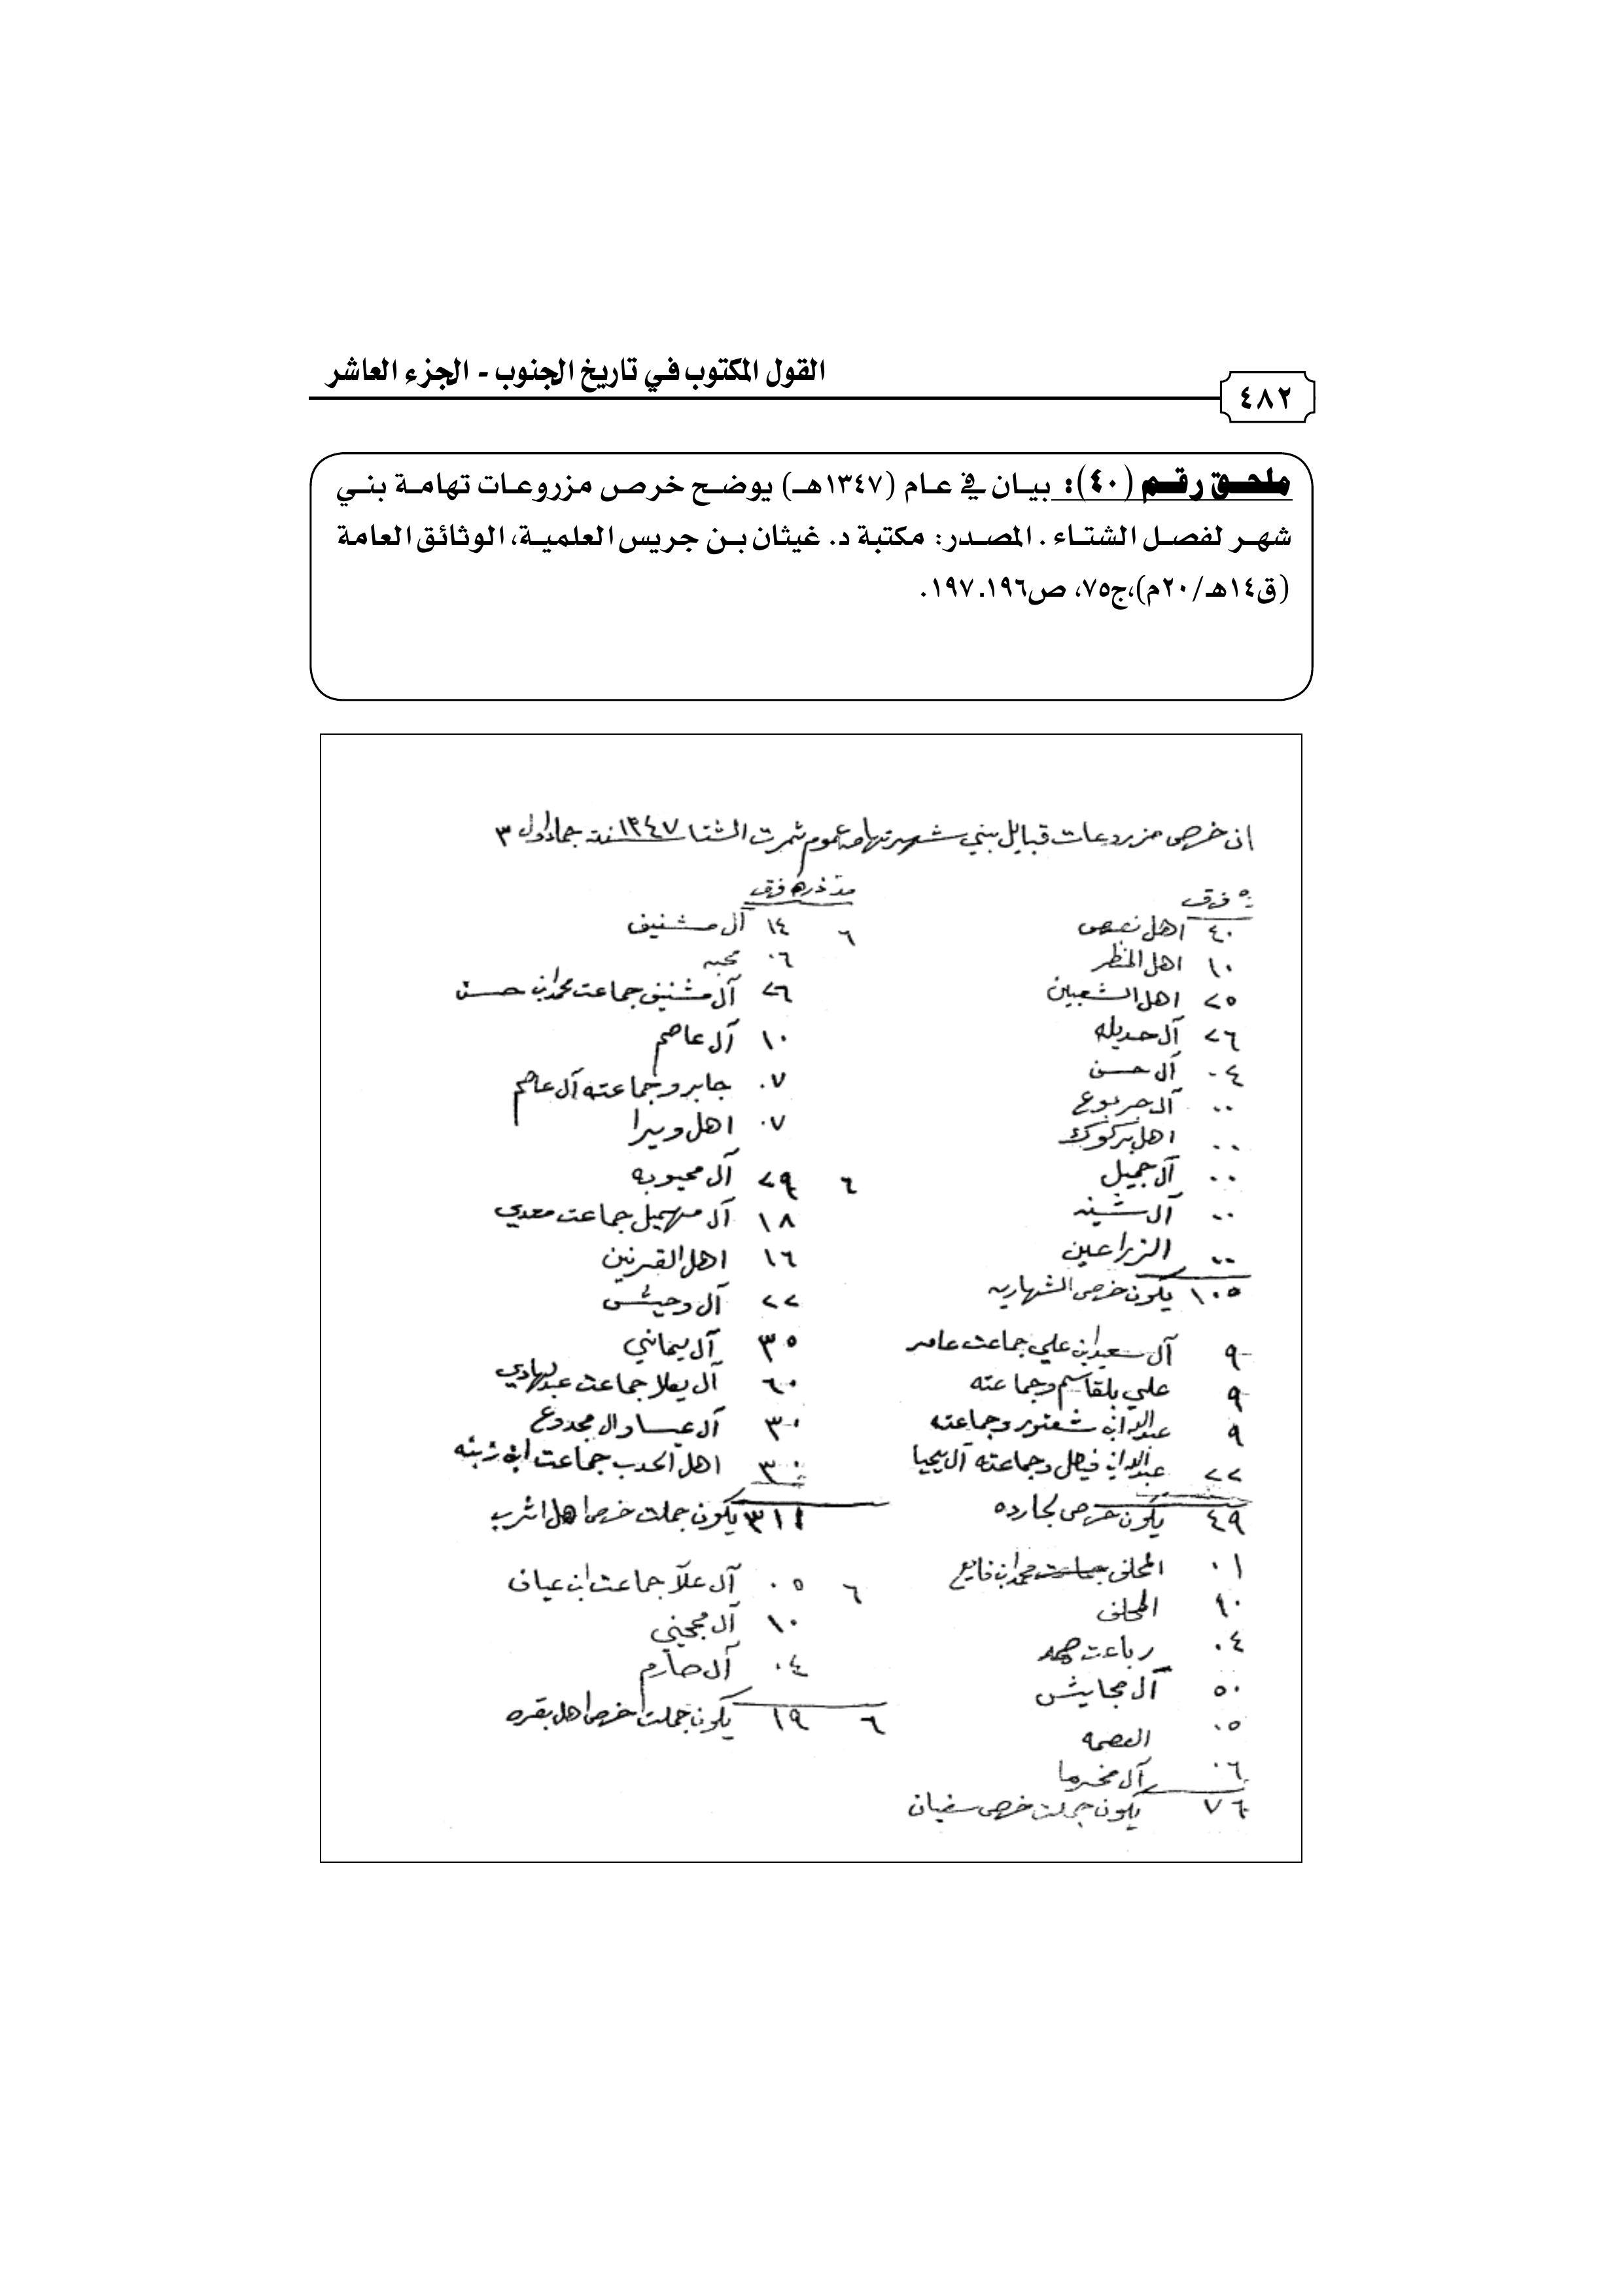 القول المكتوب في تاريخ الجنوب - الجزء العاشر
٤٨٢
ملحق رقم (٤٠): بيان في عام (١٣٤٧هـ) يوضح خرص مزروعات تهامة بني
شهر لفصل الشتاء . المصدر: مكتبة د. غيثان بن جريس العلمية، الوثائق العامة
(ق١٤هـ/٢٠م)،ج٧٥، ص١٩٦.١٩٧.
ان خرص مزروعات قبايل بني شهر تهامه عموم ثمرت الشتا ١٣٤٧ سنة جماد اول ٣
فرق
٤٠ اهل نعص
١٠ اهل المنظر
٢٥ اهل الشعبين
٢٦ آل حديله
٠٤ آل حسن
٠٠ آل جربوع
٠٠ اهل بركوك
٠٠ آل جميل
٠٠ آل شينه
٠٠ الزراعين
١٠٥ يكون خرص الشهاريه
٩ آل سعيد ابن علي جماعت عامر
٩ علي بلقاسم وجماعته
٩ عبدالله ابن وجماعته
٢٢ عبدالله ابن وجماعته آل يحيا
٤٩ يكون خرص لجارده
٠١ المخلف محمد ابن فايع
١٠ المخلف
٠٤ رباعت
٥٠ آل مجايش
٠٥ العصمه
٠٦ آل مخرما
٧٦ يكون جملت خرص سفيان
ذره فرق
٦ ١٤ آل مشنيف
٠٦
٢٦ آل مشنيف جماعت محمد ابن حسن
١٠ آل عاصم
٠٧ جابر وجماعته آل عاصم
٠٧ اهل ويرا
٦ ٢٩ آل محيوبه
١٨ آل مهيل جماعت معدي
١٦ اهل القرنين
٢٢ آل وحيش
٣٥ آل يماني
٦٠ آل يعلا جماعت عبدالهادي
٣٠ آل عيسا وال مجدوع
٣٠ اهل الحدب جماعت ابن
٣١١ يكون جملت خرص اهل اثرب
٦ ٠٥ آل علآ جماعت ابن عياف
١٠ آل محجني
٠٤ آل صارم
٦ ١٩ يكون جملت خرص اهل بقره